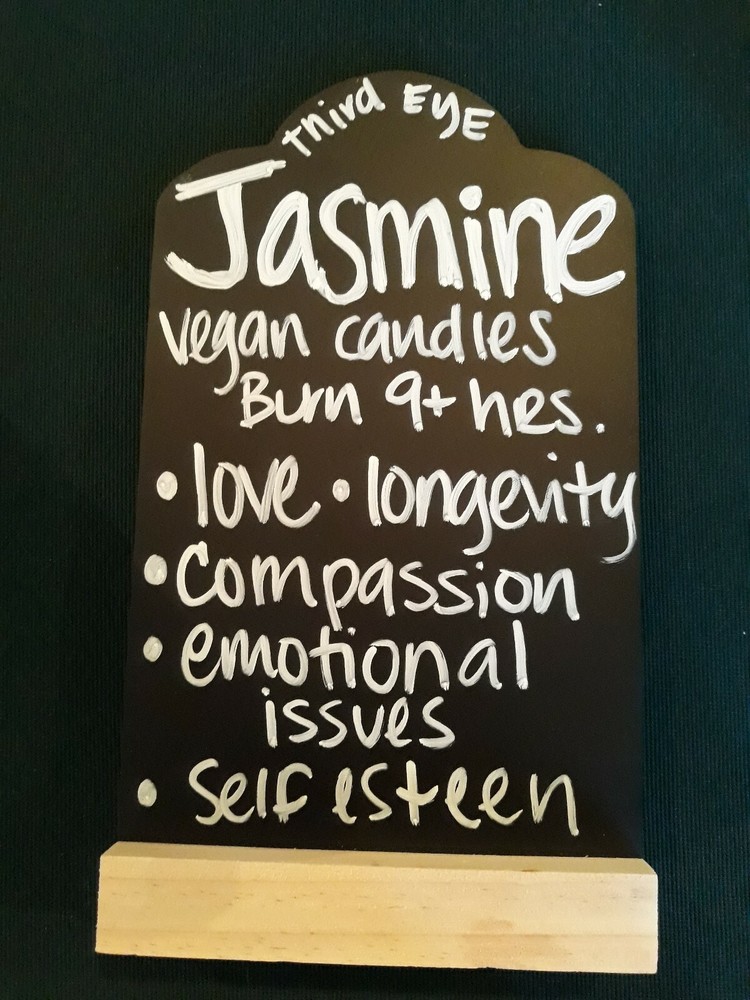 third EyE
Jasmine
vegan candles
Burn 9+ hrs.
• love • longevity
• Compassion
• emotional
issues
• Self esteen